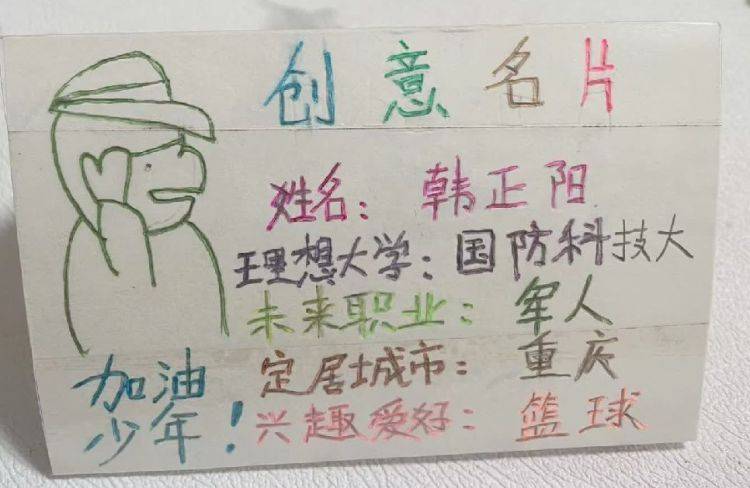 创意名片
姓名：韩正阳
理想大学：国防科技大
未来职业：军人
定居城市：重庆
兴趣爱好：篮球
加油
少年！